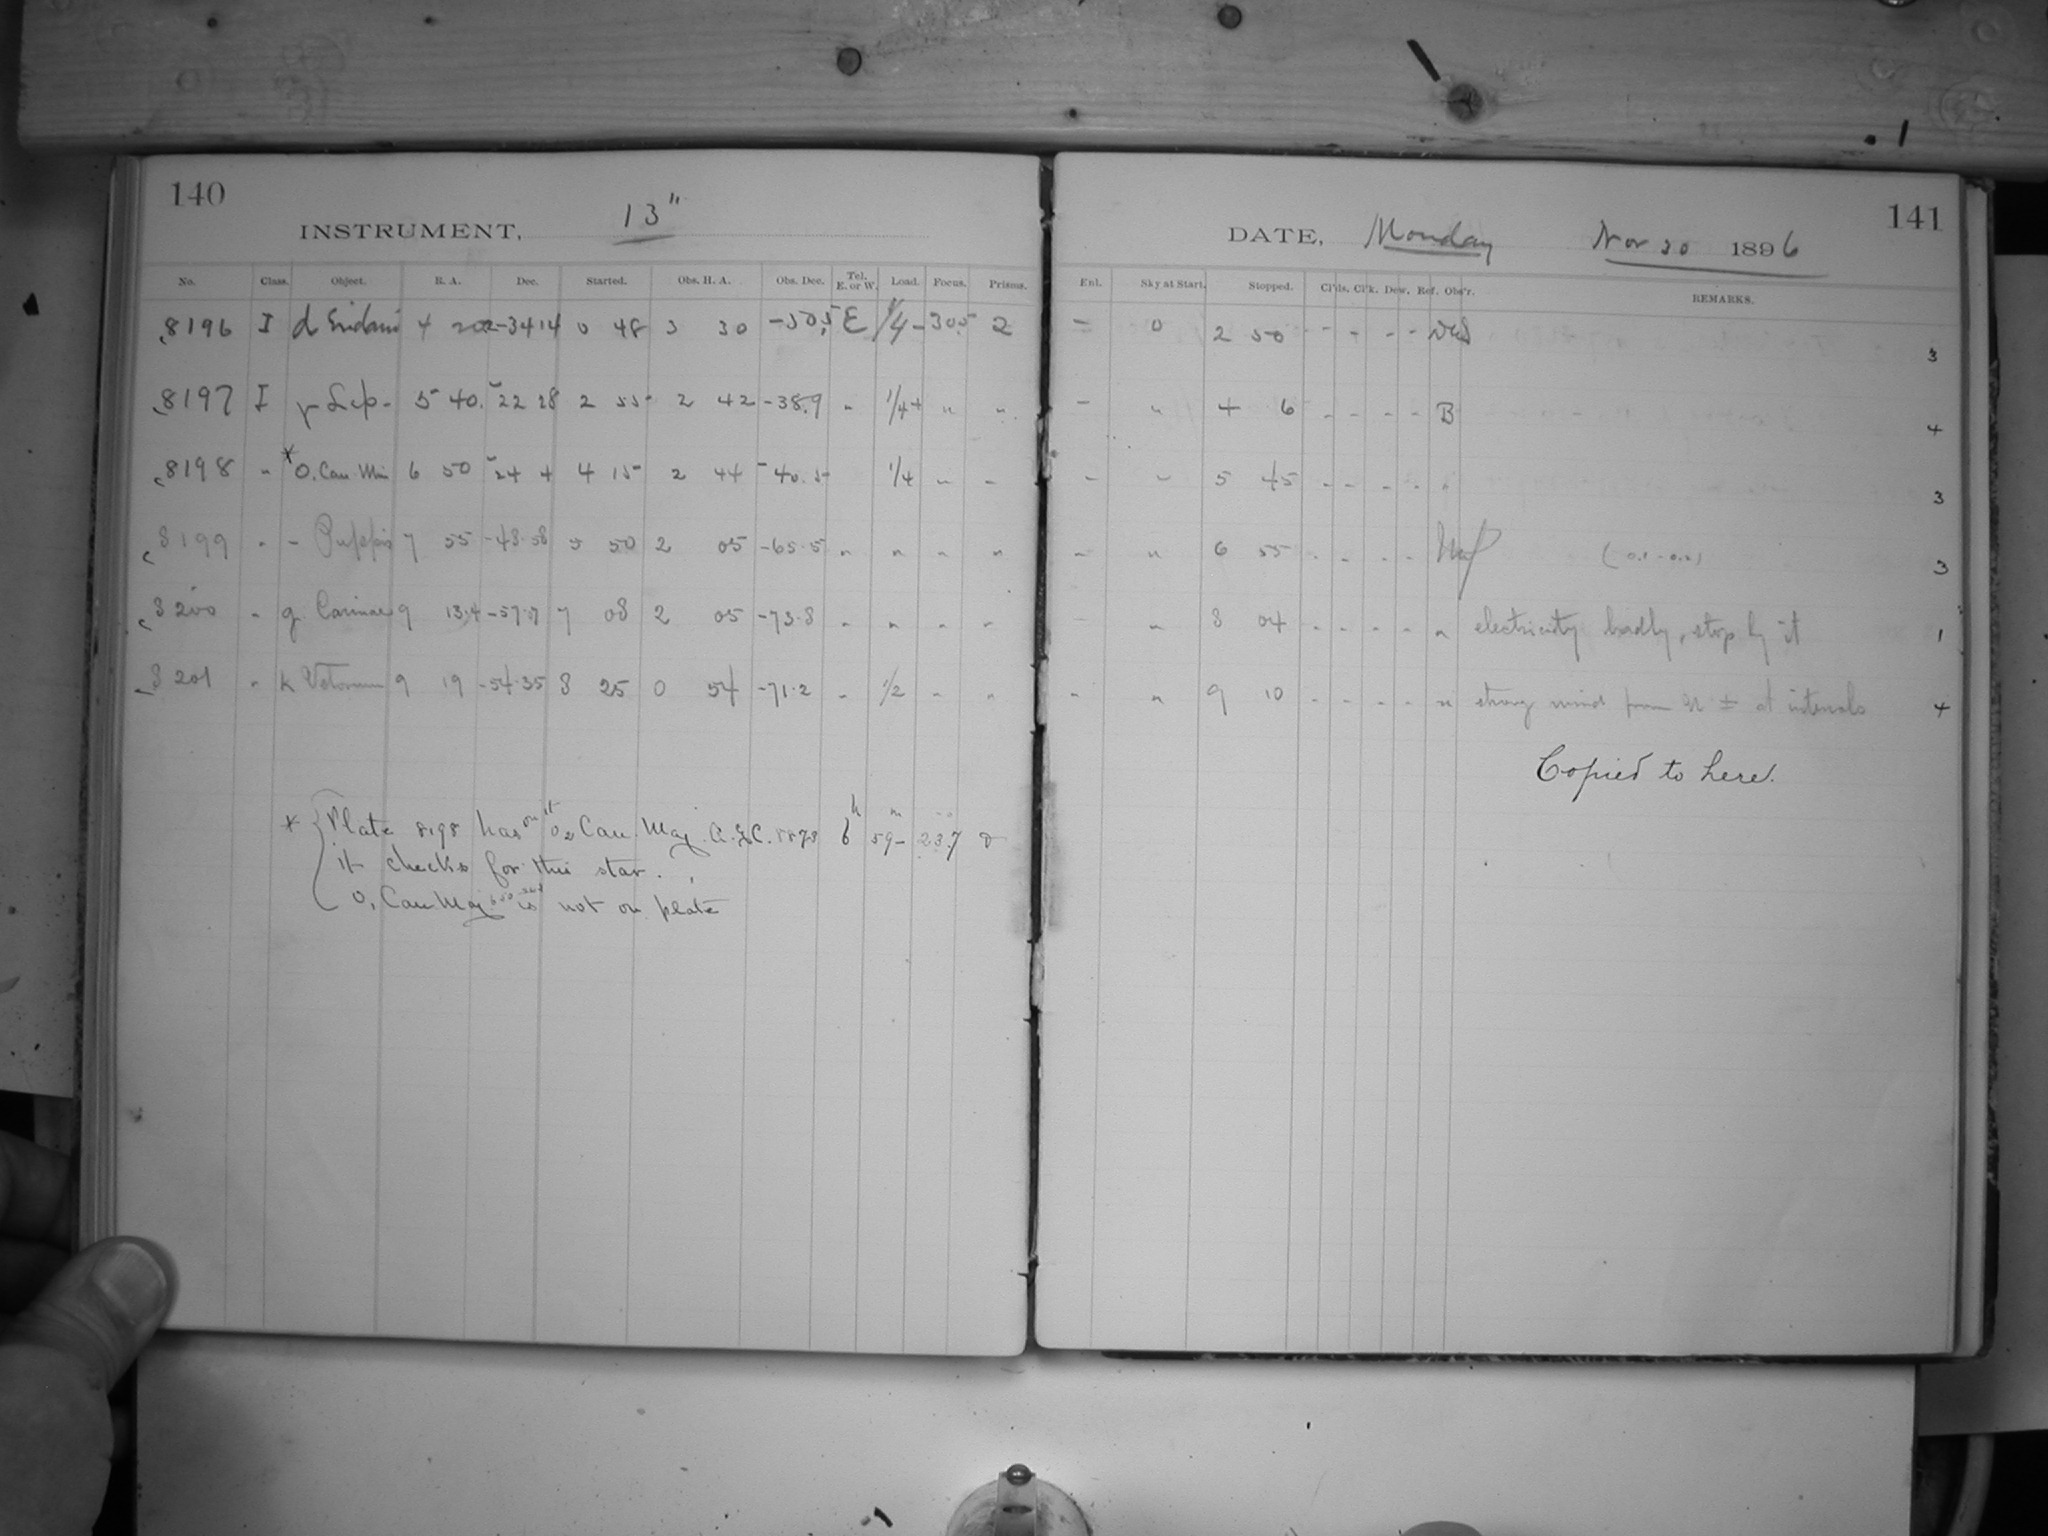 140
INSTRUMENT, 13"
No. Class. Object. R. A. Dec. Started. Obs. H. A. Obs. Dec. Tel. E. or W. Load. Focus. Prisms.
8196 I d Eridani 4 20 -34 14 0 48 3 30 -50.5 E 1/4 -30.5 2
8197 I γ Lep. 5 40. -22 28 2 55 2 42 -38.9 " 1/4+ " "
8198 " * O. Can Min 6 50 -24 4 4 15 2 44 -40.5 1/4 " "
8199 " - Puppis 7 55 -48.58 5 50 2 05 -65.5 " " " "
8200 " g Carinae 9 13.4 -57.7 7 08 2 05 -73.8 " " " "
8201 " k Velorum 9 19 -54.35 8 25 0 54 -71.2 " 1/2 " "
* Plate 8198 has on it o2 Can. Maj. A.G.C. 8873 6h 59m -23.7
it checks for this star.
o, Can Maj is not on plate
141
DATE, Monday Nov 30 1896
Enl. Sky at Start. Stopped. Cl'ds. Cl'k. Dew. Ref. Obs'r. REMARKS.
- 0 2 50 - - - - 3
- " 4 6 - - - - B 4
- " 5 45 - - - - " 3
- " 6 55 - - - - 3
- " 8 04 - - - - " electricity badly, stop by it 1
- " 9 10 - - - - " strong wind from N ± at intervals 4
Copied to here.